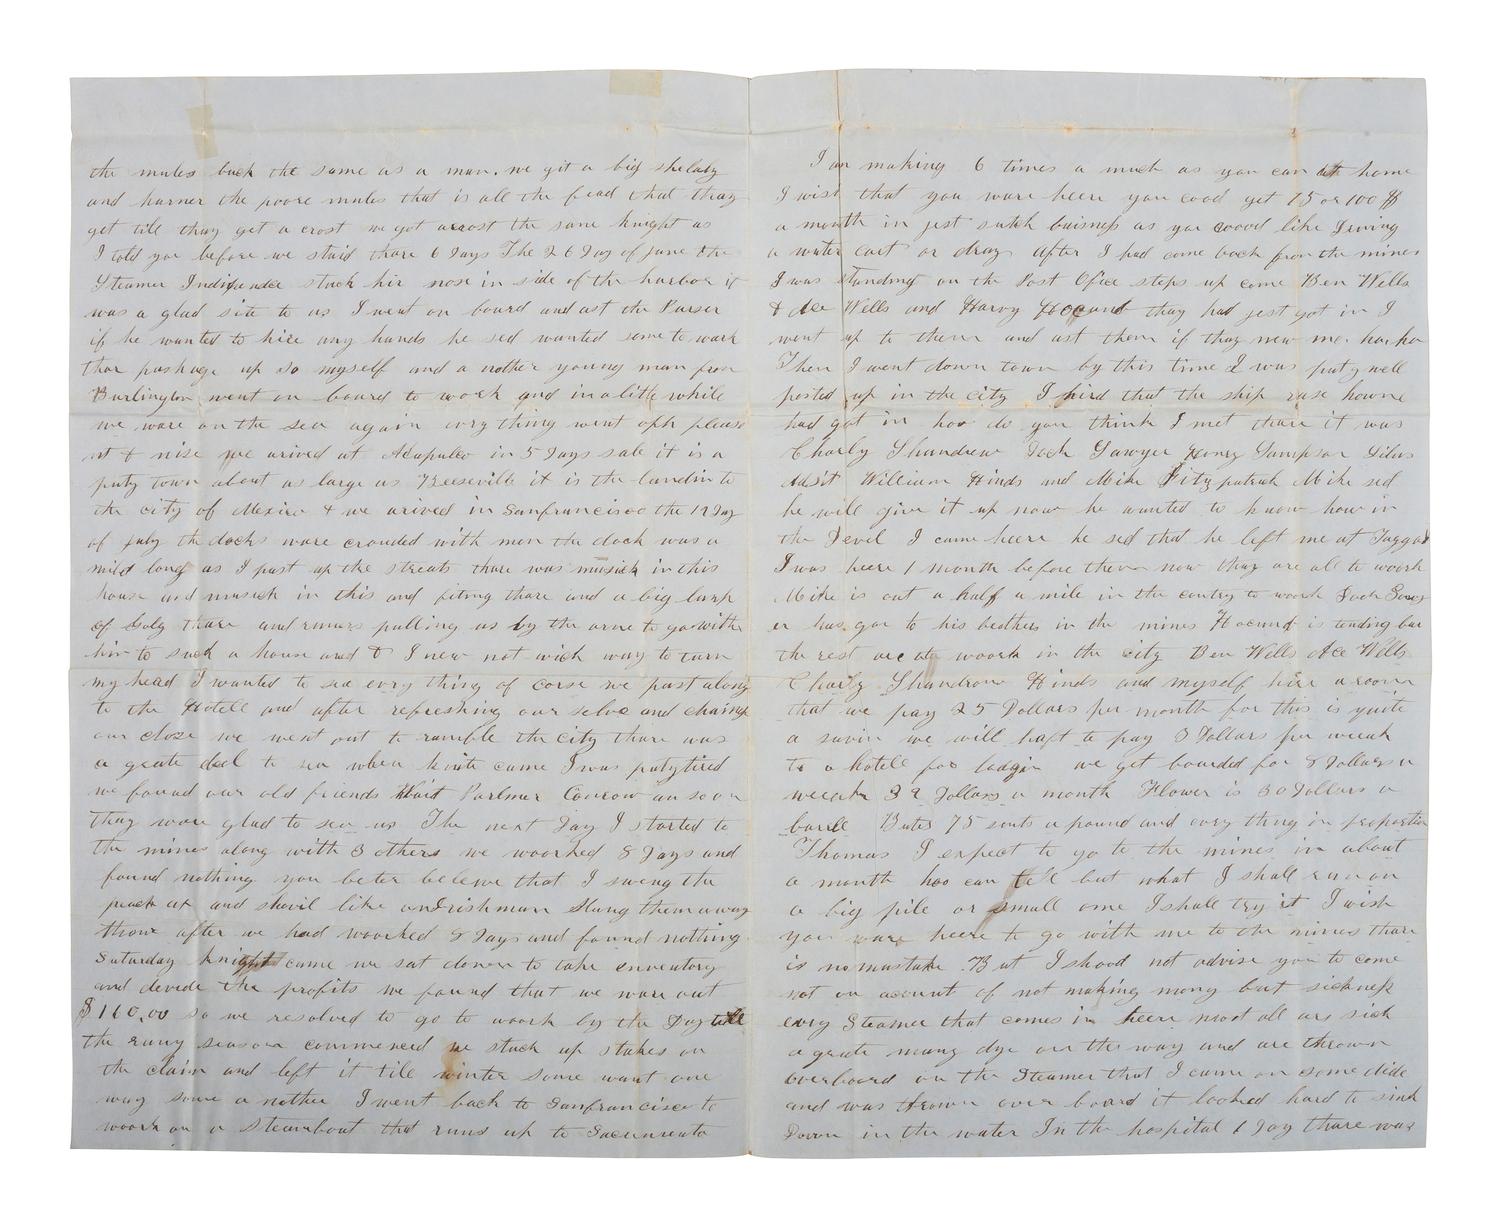 the mules back the same as a man. we git a big shelaly
and harner the poore mules that is all the fead that thay
get till thay get a crost we got acrost the same knight as
I told you before we staid thare 6 Days The 26 Day of June the
Steamer Indipendce stuck hir nose in side of the harbor it
was a glad site to us I went on board and ast the Purser
if he wanted to hire any hands he sed wanted some to work
thar pashage up so myself and a nother young man from
Burlington went on board to work and in a little while
we ware on the sea again evry thing went oph pleas
nt & nise we arived at Acapulco in 5 Days sale it is a
puty town about as large as Keeseville it is the landin to
the city of Mexico & we arived in Sanfrancisco the 12 Day
of July the docks ware crouded with men the dock was a
mild long as I past up the streats thare was musick in this
house and musick in this and fiting thare and a big lump
of Goly thare and runars pulling us by the arme to go with
him to such a house and & I new not wich way to turn
my head I wanted to sea evry thing of corse we past along
to the Hotell and after refreshing our selve and chaing
our close we went out to ramble the city thare was
a grate deal to sea when knite came I was puty tired
we found our old friends Wait Parlmer Conrow an so on
thay ware glad to sea us The next Day I started to
the mines along with 3 others we woorked 8 Days and
found nothing you beter beleive that I swong the
pack ax and shovil like an Irishman Slung them away
thow after we had woorked 8 Days and found nothing
Saturday knight came we sat down to take enventory
and devide the profits we found that we ware out
$160.00 so we resolved to go to woork by the Day till
the rany season commenced we stuck up stakes on
the claim and left it till winter some want one
way some a nother I went back to Sanfrancisco to
woork on a steamboat that runs up to Sacremento
I am making 6 times a much as you can at home
I wish that you ware heer you cood get 75 or 100 $
a month in jest sutch buisness as you woood like Driving
a water cart or dray after I had come back from the mines
I was standing on the Post Ofice steps up come Ben Wells
& Ace Wells and Harvy Hocund thay had jest got in I
went up to them and ast them if thay new me. ha ha
Then I went down town by this time I was puty well
posted up in the city I hird that the ship
had got in hoo do you think I met thare it was
Charly Shandrew Jack Sawyer Henry Sampson Silas
William Hinds and Mike Fitzpatrick Mike sed
he will give it up now he wanted to know how in
the Devil I came heere he sed that he left me at
I was heere 1 month before them now thay are all to woork
Mike is out a half a mile in the contry to woork Jack Sawy
er has gon to his brothers in the mines Hocund is tending bar
the rest are at woork in the city Ben Wells Ace Wells
Charly Shandrow Hinds and myself hire a room
that we pay 25 Dollars per month for this is quite
a savin we will haft to pay 3 Dollars per weeak
to a hotell for lodgin we get boarded for 8 Dollars a
weeak 32 Dollars a month Flower is 30 Dollars a
barell Buter 75 sents a pound and evry thing in proportion
Thomas I expect to go to the mines in about
a month hoo can tell but what I shall run on
a big pile or small one I shall try it I wish
you ware heere to go with me to the mines thare
is no mistake But I shood not advise you to come
not on acount of not making mony but sickness
evry Steamer that comes in heere most all ars sick
a grate many dye on the way and are thrown
overboard on the Steamer that I came on some dide
and was thrown over board it looked hard to sink
Down in the water In the hospital 1 Day thare was